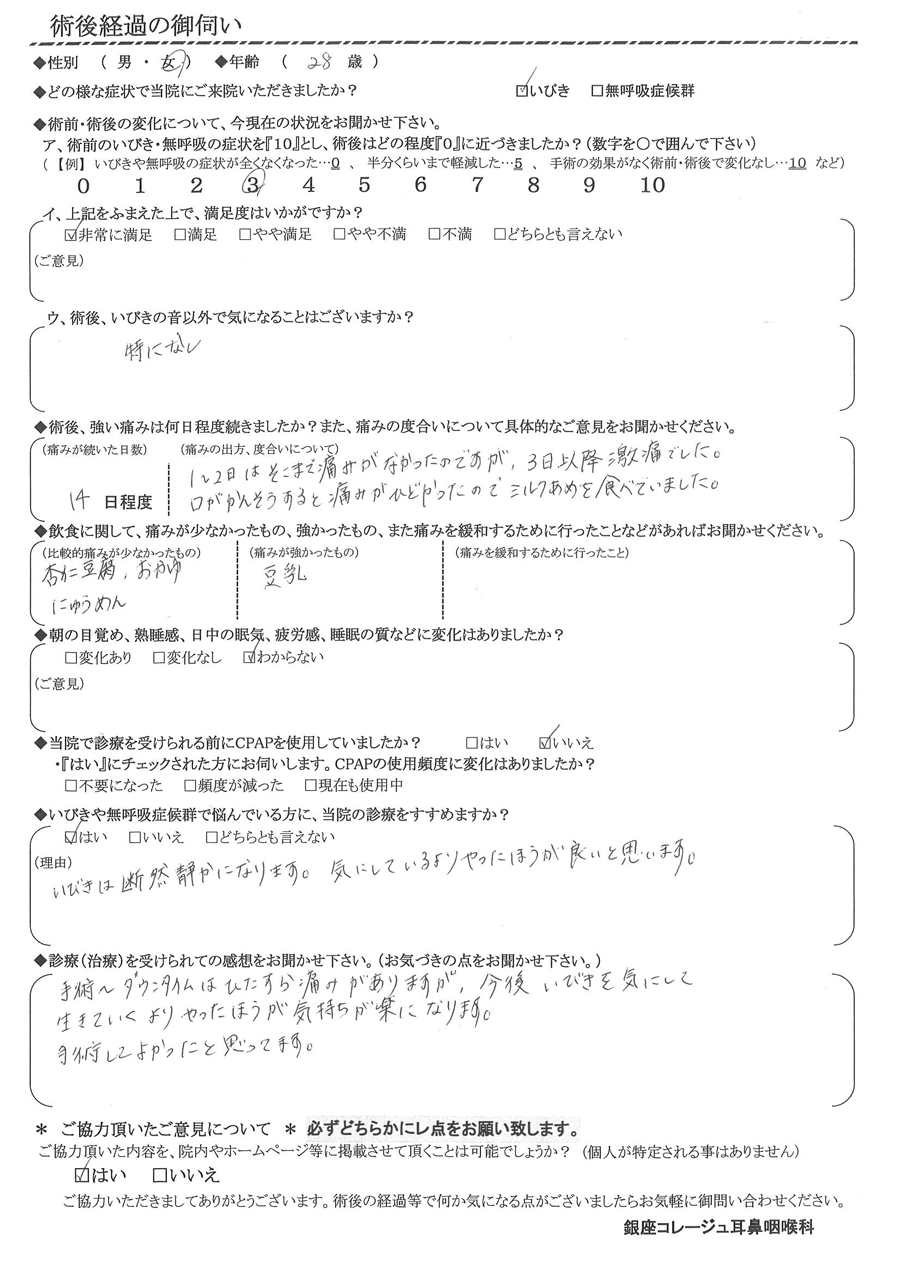 術後経過の御伺い
◆性別 ( 男 ・ 女 ) ◆年齢 ( 28 歳 )
◆どの様な症状で当院にご来院いただきましたか? ☑いびき □無呼吸症候群
◆術前・術後の変化について、今現在の状況をお聞かせ下さい。
ア、術前のいびき・無呼吸の症状を『10』とし、術後はどの程度『0』に近づきましたか?(数字を〇で囲んで下さい)
(【例】いびきや無呼吸の症状が全くなくなった…0 、 半分くらいまで軽減した…5 、 手術の効果がなく術前・術後で変化なし…10 など)
0 1 2 3 4 5 6 7 8 9 10
イ、上記をふまえた上で、満足度はいかがですか?
☑非常に満足 □満足 □やや満足 □やや不満 □不満 □どちらとも言えない
(ご意見)
ウ、術後、いびきの音以外で気になることはございますか?
特になし
◆術後、強い痛みは何日程度続きましたか?また、痛みの度合いについて具体的なご意見をお聞かせください。
(痛みが続いた日数) (痛みの出方、度合いについて)
1~2日はそこまで痛みがなかったのですが、3日以降激痛でした。
14 日程度 口がかんそうすると痛みがひどかったのでミルクあめを食べていました。
◆飲食に関して、痛みが少なかったもの、強かったもの、また痛みを緩和するために行ったことなどがあればお聞かせください。
(比較的痛みが少なかったもの) (痛みが強かったもの) (痛みを緩和するために行ったこと)
杏仁豆腐、おかゆ 豆乳
にゅうめん
◆朝の目覚め、熟睡感、日中の眠気、疲労感、睡眠の質などに変化はありましたか?
□変化あり □変化なし ☑わからない
(ご意見)
◆当院で診療を受けられる前にCPAPを使用していましたか? □はい ☑いいえ
・『はい』にチェックされた方にお伺いします。CPAPの使用頻度に変化はありましたか?
□不要になった □頻度が減った □現在も使用中
◆いびきや無呼吸症候群で悩んでいる方に、当院の診療をすすめますか?
☑はい □いいえ □どちらとも言えない
(理由)
いびきは断然静かになります。気にしているよりやったほうが良いと思います。
◆診療(治療)を受けられての感想をお聞かせ下さい。(お気づきの点をお聞かせ下さい。)
手術~ダウンタイムはひたすら痛みがありますが、今後いびきを気にして
生きていくよりやったほうが気持ちが楽になります。
手術してよかったと思ってます。
* ご協力頂いたご意見について * 必ずどちらかにレ点をお願い致します。
ご協力頂いた内容を、院内やホームページ等に掲載させて頂くことは可能でしょうか? (個人が特定される事はありません)
☑はい □いいえ
ご協力いただきましてありがとうございます。術後の経過等で何か気になる点がございましたらお気軽に御問い合わせください。
銀座コレージュ耳鼻咽喉科